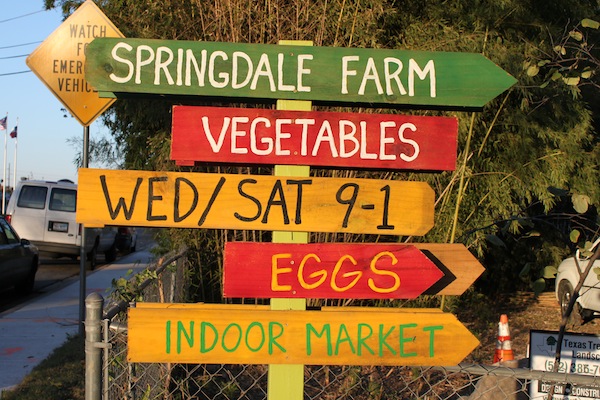 WATCH
EMER
VEHIC
SPRINGDALE FARM
VEGETABLES
WED/SAT 9-1
EGGS
INDOOR MARKET
Texas Tree
Landsc
DESIGN CONSTRU